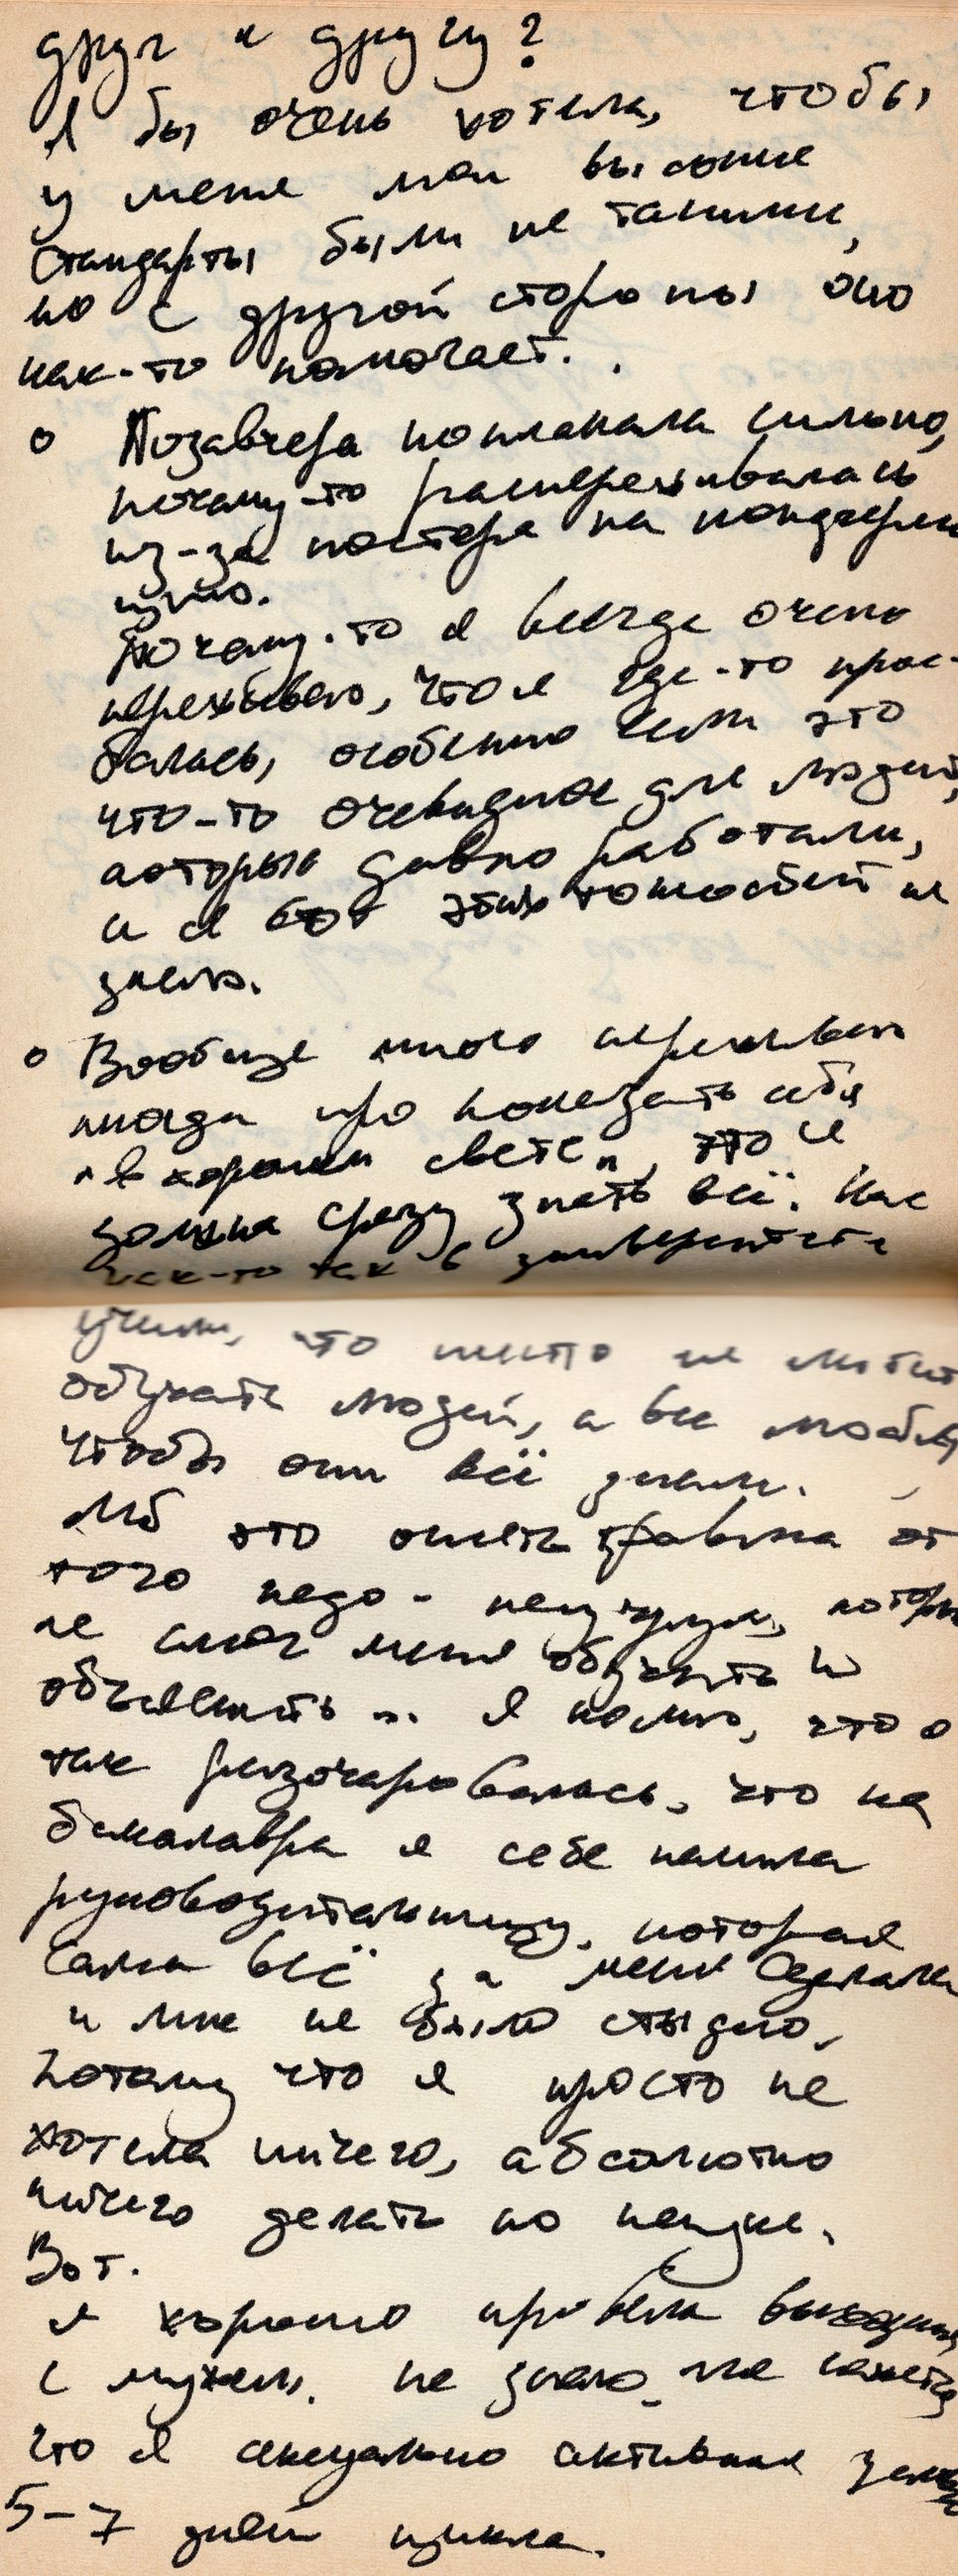 друг к другу?
Я бы очень хотела, чтобы
у меня мои высокие
стандарты были не такими,
но с другой стороны оно
как-то помогает.
o Позавчера поплакала сильно,
почему-то распереживалась
из-за постера на конферен
цию.
Почему-то я всегда очень
переживаю, что я где-то прое-
балась, особенно если это
что-то очевидное для людей,
которые давно работали,
а я вот этих тонкостей не
знаю.
o Вообще много переживаю
иногда про показать себя
"в хорошем свете", что я
должна сразу знать всё. Нас
как-то так в университете
учили, что никто не любит
обучать людей, а все любят
чтобы они всё знали.
Мб это опять травма от
того недо-
не смог меня обучить и
объяснить... Я помню, что я
так разочаровалась, что на
бакалавра я себе нашла
руководительницу, которая
сама всё за меня сделала
и мне не было стыдно,
потому что я просто не
хотела ничего, абсолютно
ничего делать по науке.
Вот.
Я хорошо провела выходные
с мужем. Не знаю, мне кажется
что я сексуально активная
5-7 дней цикла.